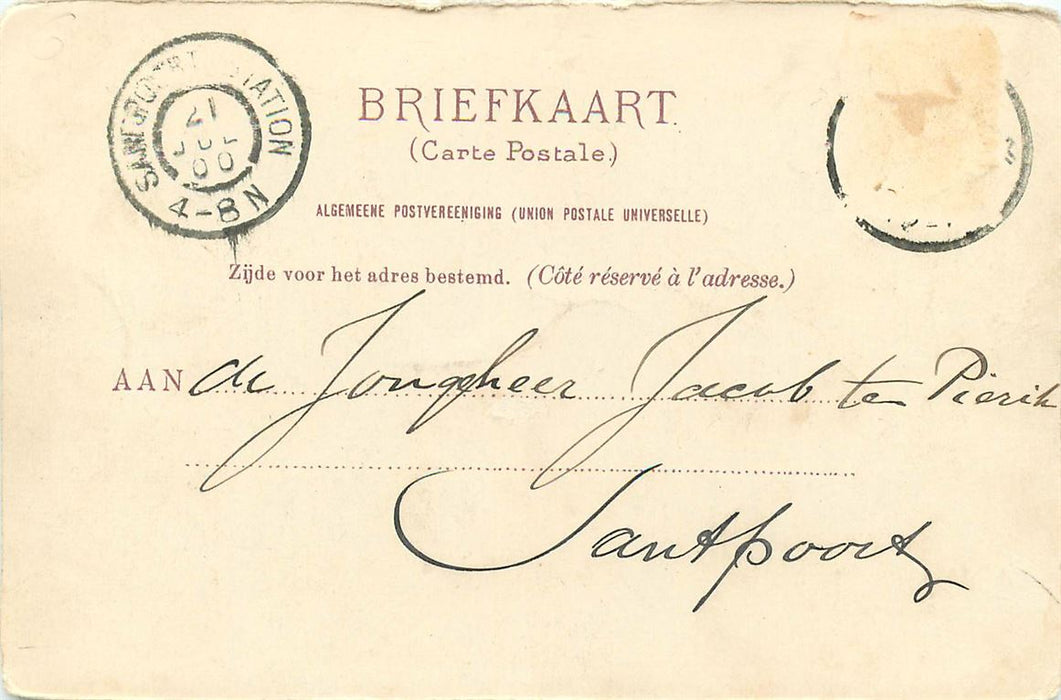 SANTPOORT STATION
21
JUL
00
4-8 N
BRIEFKAART.
(Carte Postale.)
ALGEMEENE POSTVEREENIGING (UNION POSTALE UNIVERSELLE)
Zijde voor het adres bestemd. (Côté réservé à l'adresse.)
AAN de Jongeheer Jacob ten Pierik
Santpoort